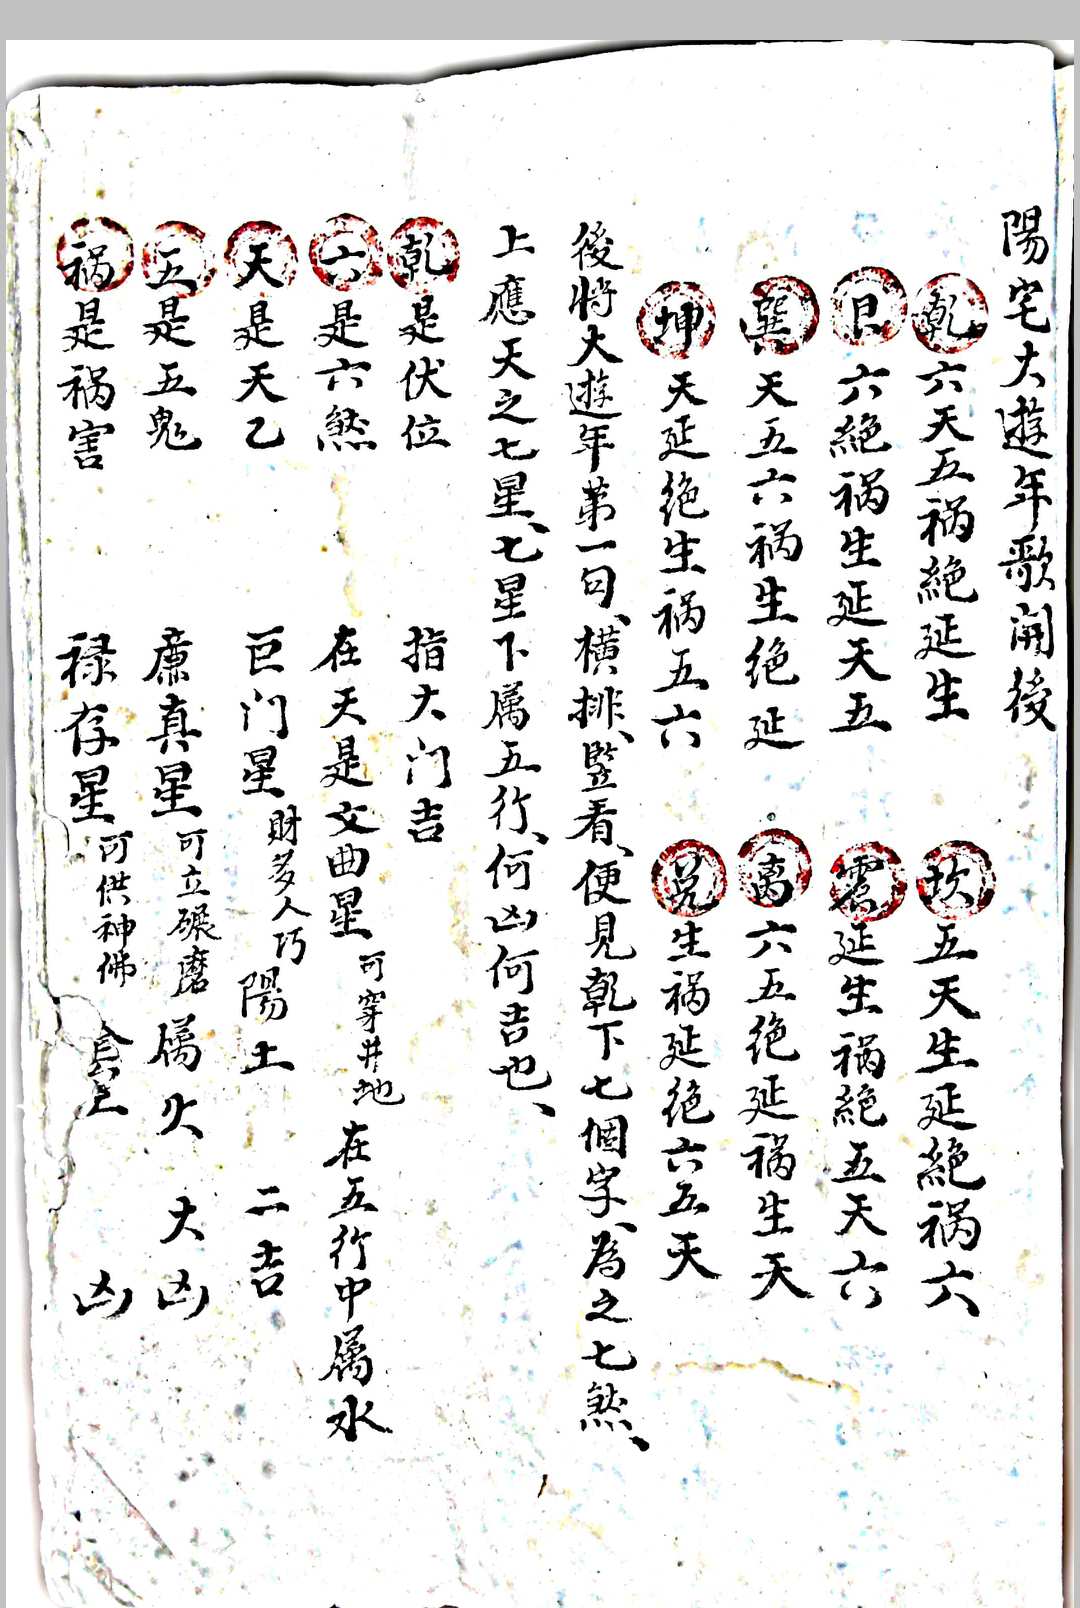 陽宅大遊年歌開後
乾六天五祸絕延生　坎五天生延絕祸六
艮六絕祸生延天五　震延生祸絕五天六
巽天五六祸生绝延　离六五绝延祸生天
坤天延绝生祸五六　兑生祸延绝六五天
後將大遊年第一句、橫排、竪看、便見乾下七個字、為之七煞、
上應天之七星、七星下属五行、何凶何吉也、
乾是伏位　指大门吉
六是六煞　在天是文曲星可穿井地　在五行中属水
天是天乙　巨门星財多人巧　陽土　二吉
五是五鬼　廉真星可立碾磨　属火　大凶
祸是祸害　禄存星可供神佛　凶